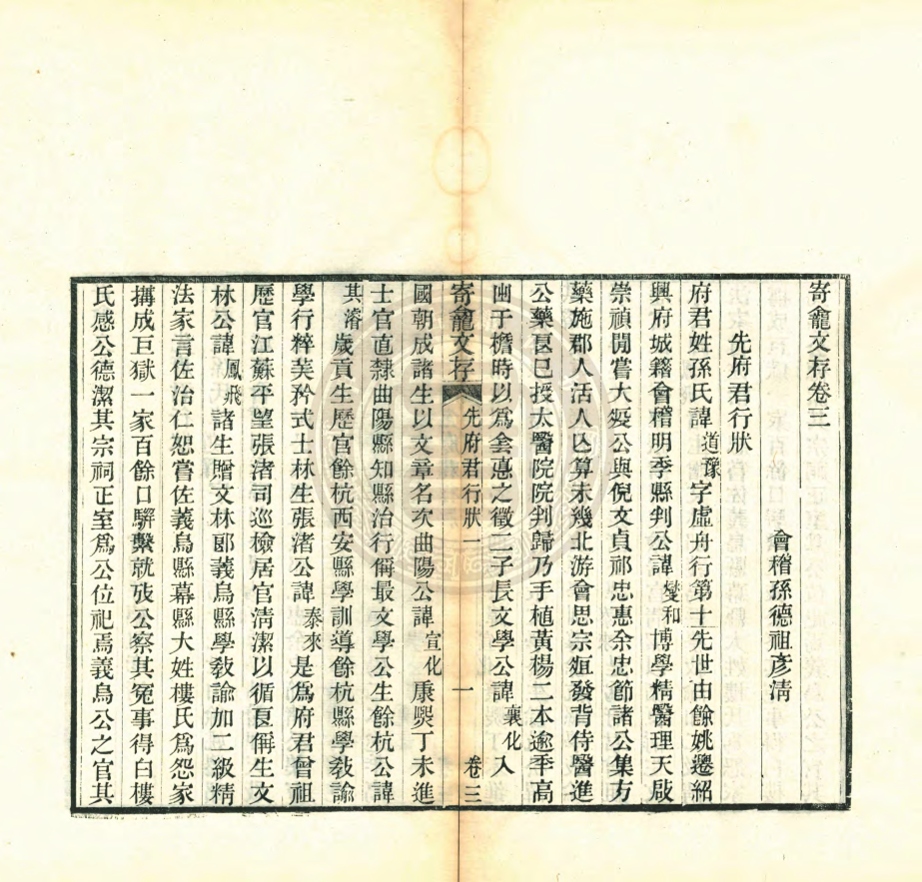 寄龕文存卷三
會稽孫德祖彥淸
先府君行狀
府君姓孫氏諱道豫字虛舟行第十一先世由餘姚遷紹
興府城籍會稽明季縣判公諱燮和博學精醫理天啟
崇禎閒嘗大疫公與倪文貞祁忠惠余忠節諸公集方
藥施郡人活人亾算未幾北游會思宗疽發背侍醫進
公藥㫐巳授太醫院院判歸乃手植黃楊二本逾秊高
出于檐時以爲之徵二子長文學公諱襄化入
寄龕文存 先府君行狀一 一 卷三
國朝成諸生以文章名次曲陽公諱宣化康熙丁未進
士官直隸曲陽縣知縣治行稱最文學公生餘杭公諱
其濬歲貢生歷官餘杭西安縣學訓導餘杭縣學敎諭
學行粹美矜式士林生張渚公諱泰來是爲府君曾祖
歷官江蘇平望張渚司巡檢居官淸潔以循㫐稱生文
林公諱鳳飛諸生贈文林郎義烏縣學敎諭加二級精
法家言佐治仁恕嘗佐義烏縣幕縣大姓樓氏爲怨家
搆成巨獄一家百餘口駢繫就㱿公察其冤事得白樓
氏感公德潔其宗祠正室爲公位祀焉義烏公之官其